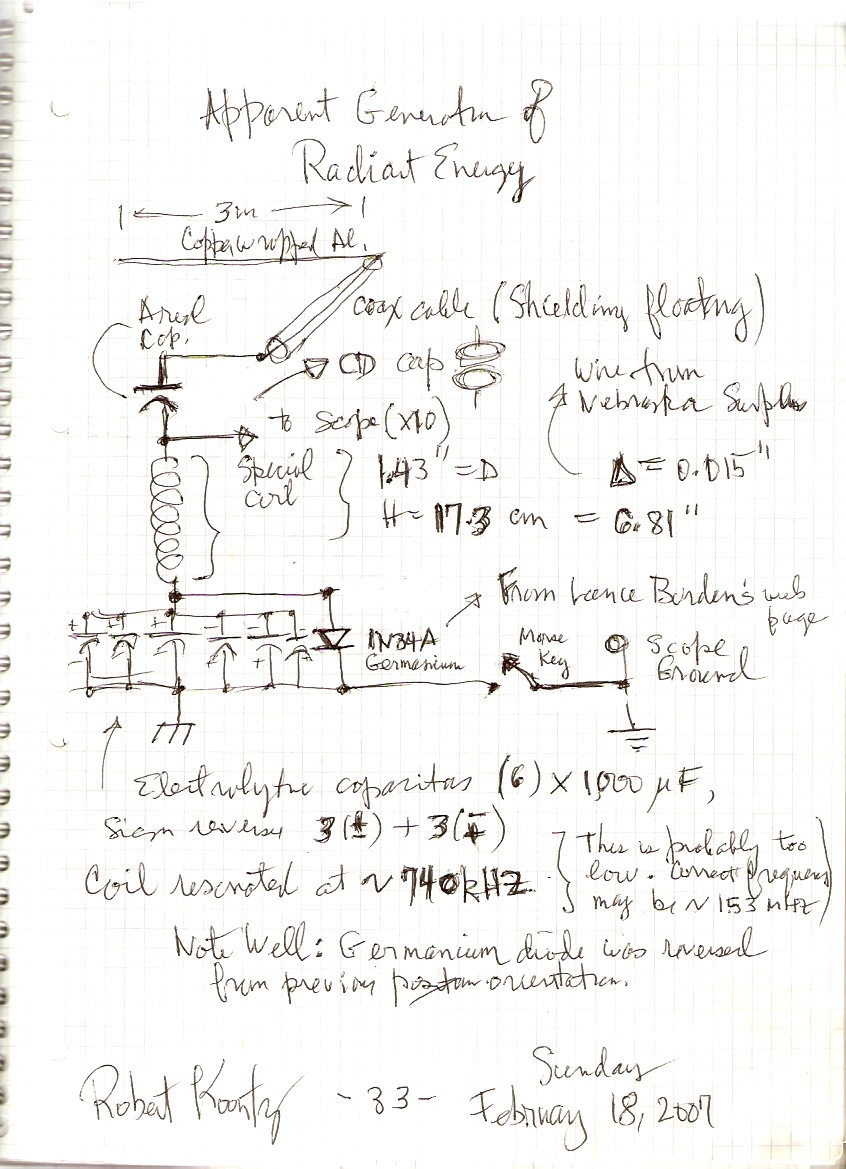 Apparent Generator of
Radiant Energy
3 in
Copper wrapped Al.
coax cable (Shielding floating)
Areal
Cap.
CD cap
wire from
Nebraska Surplus
to scope (X10)
Special
coil
1.43" = D
Δ = 0.015"
H = 17.3 cm = 6.81"
From Lance Borden's web
page
1N34A
Germanium
Morse
Key
Scope
Ground
Electrolytic capacitors (6) X 1,000 μF,
Sign reverse 3(±) + 3(∓)
Coil resonated at ~ 740 kHZ.
This is probably too
low. Correct frequency
may be ~ 153 MHz
Note Well: Germanium diode was reversed
from previous orientation.
Robert Koontz
- 33 -
Sunday
February 18, 2007